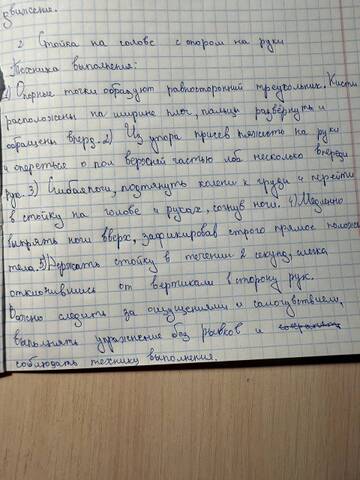 движение.
2 Стойка на голове с опором на руки
Техника выполнения:
1) Опорные точки образуют равносторонний треугольник. Кисти
расположены на ширине плеч, пальцы развернуть и
обращены вперз. 2) Из упора присев тяжесть на руки
и опереться о пол верхней частью лба несколько впереди
рук. 3) Сгибая ноги, подтянуть колени к груди и перейти
в стойку на голове и руках, согнув ноги. 4) Медленно
выпрять ноги вверх, зафиксировав строго прямое полож
тела. 5) Держать стойку в течении 2 секунд, слегка
отклонившись от вертикали в сторону рук.
Важно следить за ощущениями и самочувствием,
выполнять упражнение без рывков и
соблюдать технику выполнения.